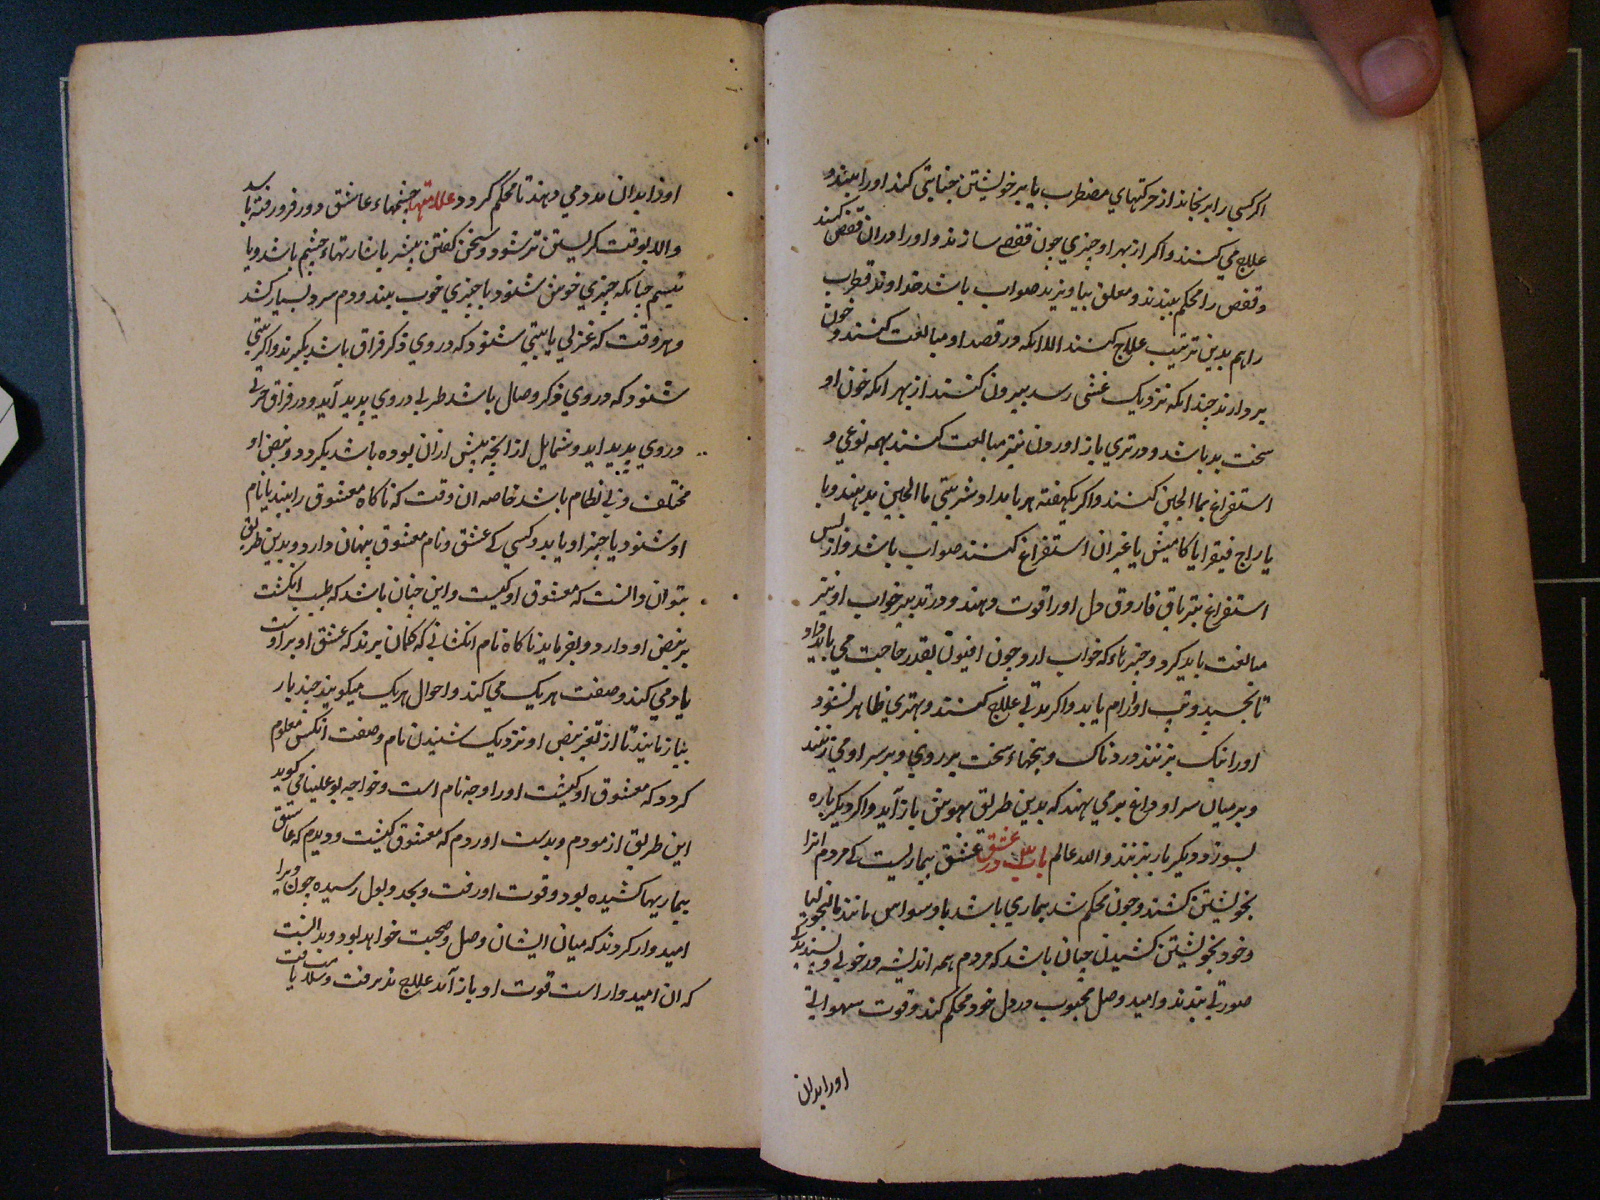 اکر کسی را برنجاند از حرکتهای مضطرب یا بر خویشتن جنایتی کند او را ببندند و
علاج می کنند و اکر از بهر او چیزی چون قفص سازند و او را در ان قفص کنند
و قفص را محکم ببندند و معلق بیاویزند صواب باشد خداوند قطرب
را هم بدین ترتیب علاج کنند الا انکه در فصد او مبالغت کنند و خون
بردارند چندانکه نزدیک غشی رسد بیرون کنند از بهر انکه خون او
سخت بد باشد و در تری باز اوردن نیز مبالغت کنند بهمه نوعی و
استفراغ بماالجبن کنند و اکر یکهفته هر بامداد شربتی ماالجبن بدهند و با
یارج فیقرا یا کامیش یا غیر ان استفراغ کنند صواب باشد و از پس
استفراغ بتریاق فاروق دل او را قوت دهند و در تدبیر خواب او نیز
مبالغت باید کرد و چیزهاء که خواب ارد چون افیون بقدر حاجت می باید داد
تا بخسپد و تب او ارام یابد و اکر مدتی علاج کنند و بهتری ظاهر نشود
او را نیک بزنند دردناک و پنجهاء سخت بر روی و بر سر او می زنند
و بر میان سر او داغ برمی نهند که بدین طریق بهوش باز آید و اکر دیکر باره
بسوزد دیکر بار بزنند والله عالم باب در عشق عشق بیماریست که مردم انرا
بخویشتن کشند و چون محکم شد بیماری باشد با وسواس مانند مالنخولیا
و خود بخویشتن کشیدن چنان باشد که مردم همه اندیشه در خوبی و پسندیدکی
صورتی بندند و امید وصل محبوب در دل خود محکم کند و قوت شهوانی
اورا بدان
او را بدان مدد می دهند تا محکم کردد علامتها چشمهاء عاشق دور فرو رفته باشد
و الا بوقت کریستن تر شود و سخن کفتن بیشتر باشارتهاء چشم باشد و با
تبسم چنانکه چیزی خوش شنود یا چیزی خوب بیند و دم سرد بسیار کشد
و هر وقت که غزلی یا بیتی شنود که در وی ذکر فراق باشد بکرید و اکر بیتی
شنود که در وی ذکر وصال باشد طربی در وی پدید آید و در فراق حزنی
در وی پدید اید و شمایل از انچه پیش ازان بوده باشد بکردد و نبض او
مختلف و بی نظام باشد خاصه ان وقت که ناکاه معشوق را بیند یا نام
او شنود یا خبر او یابد و کسی که عشق و نام معشوق پنهان دارد و بدین طریق
بتوان دانست که معشوق او کیست و این چنان باشد که طبیب انکشت
بر نبض او دارد و بفرماید ناکاه نام انکسانی که کمان برند که عشق او بر اوست
یاد می کند و صفت هر یک می کند و احوال هر یک میکویند چند بار
بیازمایند تا از تغیر نبض او نزدیک شنیدن نام و صفت انکس معلوم
کردد که معشوق او کیست او را چه نام است و خواجه بو علی سینا می کوید
این طریق ازمودم و بدست اوردم که معشوق کیست و دیدم که عاشق
بیماریها کشیده بود و قوت او رفت و بحد ذبول رسیده چون ویرا
امیدوار کردند که میان ایشان وصل و صحبت خواهد بود و بدانست
که ان امیدوار است قوت او باز آمد علاج پذیرفت و سلامت یافت